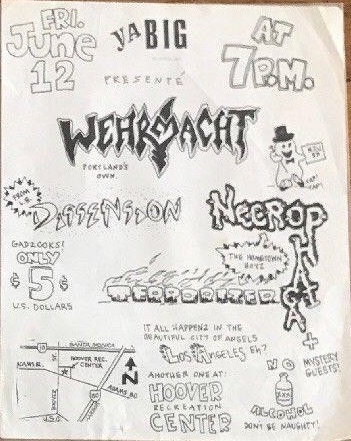 FRI.
June
12
yA BIG
PRESENTÉ
AT
7P.M.
WEHRMACHT
PORTLAND'S
OWN.
FROM
DISSENSION
NECROPHILIACA
THE HOMETOWN
BOYZ
GADZOOKS!
ONLY
$5¢
U.S. DOLLARS
TERRORIZER
IT ALL HAPPENZ IN THE
BEAUTIFUL CITY OF ANGELS
LOS ANGELES EH?
ANOTHER ONE AT:
HOOVER
RECREATION
CENTER
+
MYSTERY
GUESTS!
NO
XXX
ALCOHOL
DON'T BE NAUGHTY!
10
SANTA MONICA
HOOVER REC.
CENTER
ADAMS BD
HOOVER
ST.
U.S.C.
N